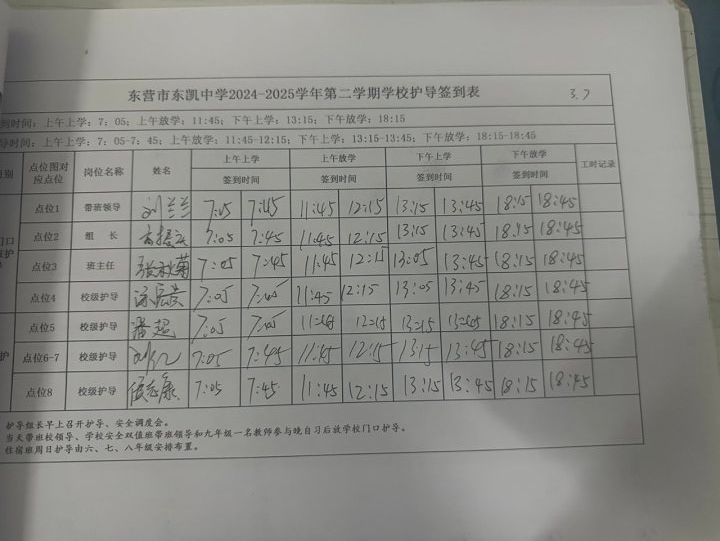 东营市东凯中学2024-2025学年第二学期学校护导签到表 3.7
到时间：上午上学：7：05；上午放学：11:45；下午上学：13:15；下午放学：18:15
导时间：上午上学：7：05-7：45；上午放学：11:45-12:15；下午上学：13:15-13:45；下午放学：18:15-18:45
点位图对应点位 岗位名称 姓名 上午上学 上午放学 下午上学 下午放学 工时记录
签到时间 签到时间 签到时间 签到时间
点位1 带班领导 刘兰兰 7:05 7:45 11:45 12:15 13:15 13:45 18:15 18:45
点位2 组 长 7:05 7:45 11:45 12:15 13:15 13:45 18:15 18:45
点位3 班主任 张秋菊 7:05 7:45 11:45 12:15 13:05 13:45 18:15 18:45
点位4 校级护导 7:05 7:05 11:45 12:15 13:05 13:45 18:15 18:45
点位5 校级护导 潘超 7:05 7:05 11:45 12:15 13:15 13:45 18:15 18:45
点位6-7 校级护导 7:05 7:45 11:45 12:15 13:15 13:45 18:15 18:45
点位8 校级护导 7:05 7:45 11:45 12:15 13:15 13:45 18:15 18:45
护导组长早上召开护导、安全调度会。
当天带班校领导、学校安全双值班带班领导和九年级一名教师参与晚自习后放学校门口护导。
住宿班周日护导由六、七、八年级安排布置。